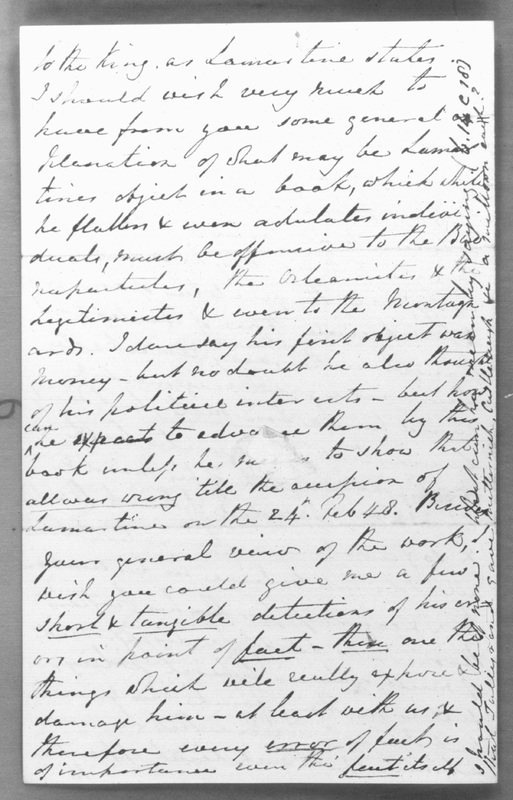 to the King, as Lamartine states.
I should wish very much to
have from you some general
of what may be Lamar
tines object in a book, which while
he flatters & even adulates indivi
duals, must be offensive to the Bo
napartists, the Orleanistes & the
Legitimistes & even to the Montagn
ards. I dare say his first object was
money - but no doubt he also thought
of his political interests - but how
can he expects to advance them by this
book unless he to show that
all was wrong till the accession of
Lamartine on the 24th Feb 48. Besides
your general view of the work,
wish you could give me a few
short & tangible detections of his err
ors in point of fact - these are the
things which will really expose &
damage him - at least with us, &
therefore every error of fact is
of importance even tho' fact itself
should be
that Talleyrand gave Metternich, Castlereagh & a million each?